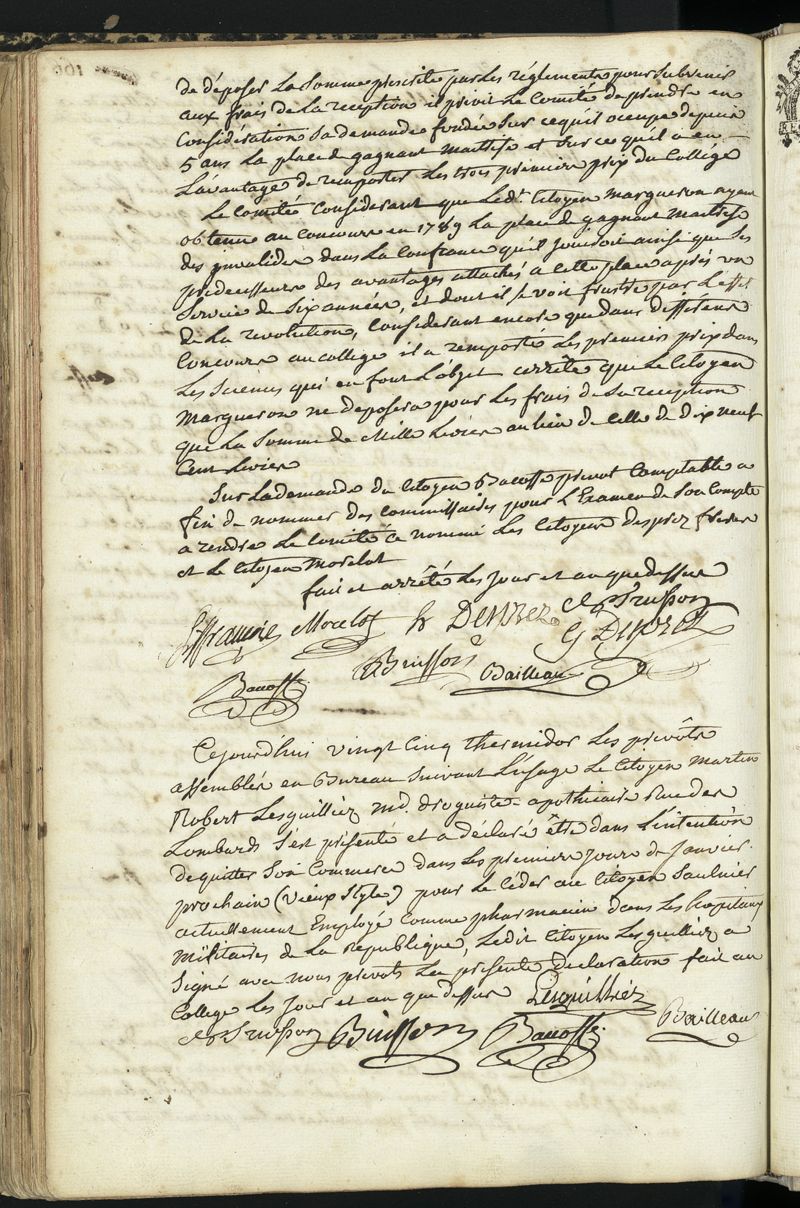 de déposer La Somme prescrite par Les réglements pour Subvenir
aux frais de La reception il prioit Le Comité de prendre en
Considération Sa demande fondée Sur ce qu'il occupe depuis
5 ans La place de gagnant maitrise et Sur ce qu'il a eu
L'avantage de remporter Les trois premiers prix du Collége
Le Comité Considerant que Ledt. Citoyen Margueron ayant
obtenu au concours en 1789 La place de gagnant maitrise
des invalides dans La Confiance qu'il jouiroit ainsi que Ses
prédecesseurs des avantages attachés a cette place après un
Service de Six années, et dont il se voit frustré par L'effet
de La revolution, Considerant encore que dans differens
Concours au college il a remporté Les premiers prix dans
Les Sciences qui en font L'objet arrête que Le Citoyen
Margueron ne deposera pour Les frais de Sa reception
que La Somme de Mille Livres au lieu de celle de dix neuf
Cent Livres
Sur La demande du Citoyen Bacoffe prevot Comptable a
fin de nommer des Commissaires pour L'Examen de Son Compte
a rendre Le Comité a nommé Les Citoyens desprez freres
et Le Citoyen Morelot
fait et arrêté Les jour et an que dessus
Morelot DESPREZ Trusson
G Desprez
Buisson Bailleau
Bacoffe
Cejourd'hui vingt Cinq thermidor Les prevôts
assemblés en Bureau Suivant L'usage Le Citoyen Martin
Robert Lesguilliez md. droguiste-apothicaire Rue des
Lombards S'est présenté et a déclaré être dans L'intention
de quitter Son Commerce dans Les premiers jours de Janvier
prochain (vieux Style) pour Le Céder au Citoyen Saulnier
actuellement Employé comme pharmacien dans Les hopitaux
militaires de La Republique, Ledit Citoyen Lesguilliez a
Signé avec nous prevots La presente declaration fait au
College Les Jour et an que dessus Lesguilliez
Trusson Buisson Bacoffe Bailleau